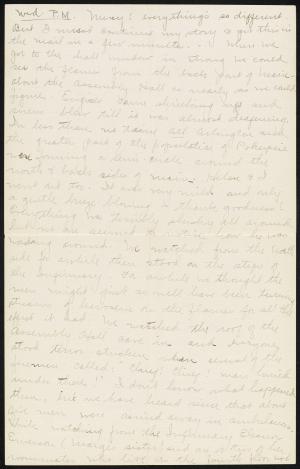 Wed. P.M. Mercy! everything's so different.
But I must continue my story to get this in
the mail in a few minutes. When we
got to the hall window in strong we could
see the flames from the back part of Main
about the Assembly Hall as nearly as we could
figure. Engines came shrieking up and
sirens blew till it was almost deafening.
In less than no time all Arlington and
the greater part of the population of Pokeepsie
were forming a semi-circle around the
north & back sides of Main. Helen & I
went out too. It was very mild and only
a gentle breeze blowing – thank goodness!
Everything was terribly slushy all around
but no one seemed to notice how he was
wading around. We watched from the
side for awhile then stood on the steps of
the Infirmary. For awhile we thought the
men might just as well have been turning
streams of kerosene on the flames for all the
effect it had. We watched the roof of the
Assembly Hall cave in and everyone
stood terror stricken when several of the
firemen called: "They! they! man buried
under there!" I don't know what happened
then, but we have heard since that about
five men were carried away in ambulances.
While watching from the Infirmary Eleanor
Emerson (Marge's sister) and an
roommate who live on the fourth floor